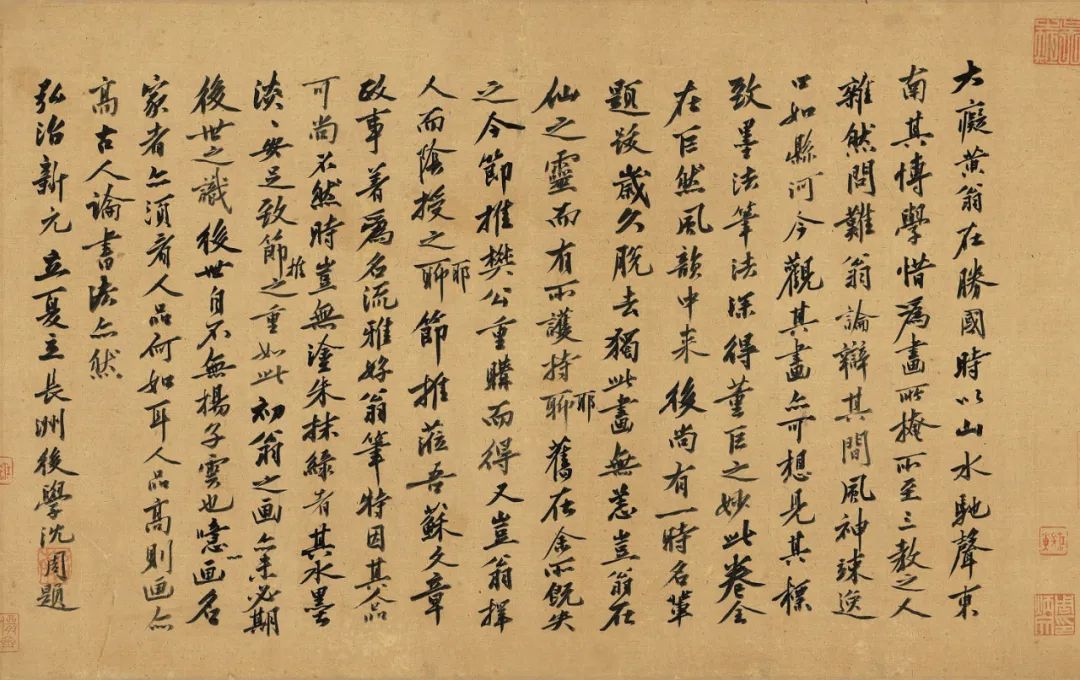 大癡黃翁在勝國時以山水馳聲東
南其博學惜爲畫所掩所至三教之人
雜然問難翁論辯其間風神竦逸
口如縣河今觀其畫亦可想見其標
致墨法筆法深得董巨之妙此卷全
在巨然風韻中来後尚有一時名輩
題跋歲久脫去獨此畫無恙豈翁在
仙之靈而有所護持聊耶舊在余所既失
之今節推樊公重購而得又豈翁擇
人而陰授之聊耶節推蒞吾蘇文章
政事著爲名流雅好翁筆特因其人品
可尚不然時豈無塗朱抹綠者其水墨
淡淡安足致節推之重如此初翁之画亦未必期
後世之識後世自不無揚子雲也噫画名
家者亦須看人品何如耳人品高則画亦
高古人論書法亦然
弘治新元立夏立長洲後學沈周題